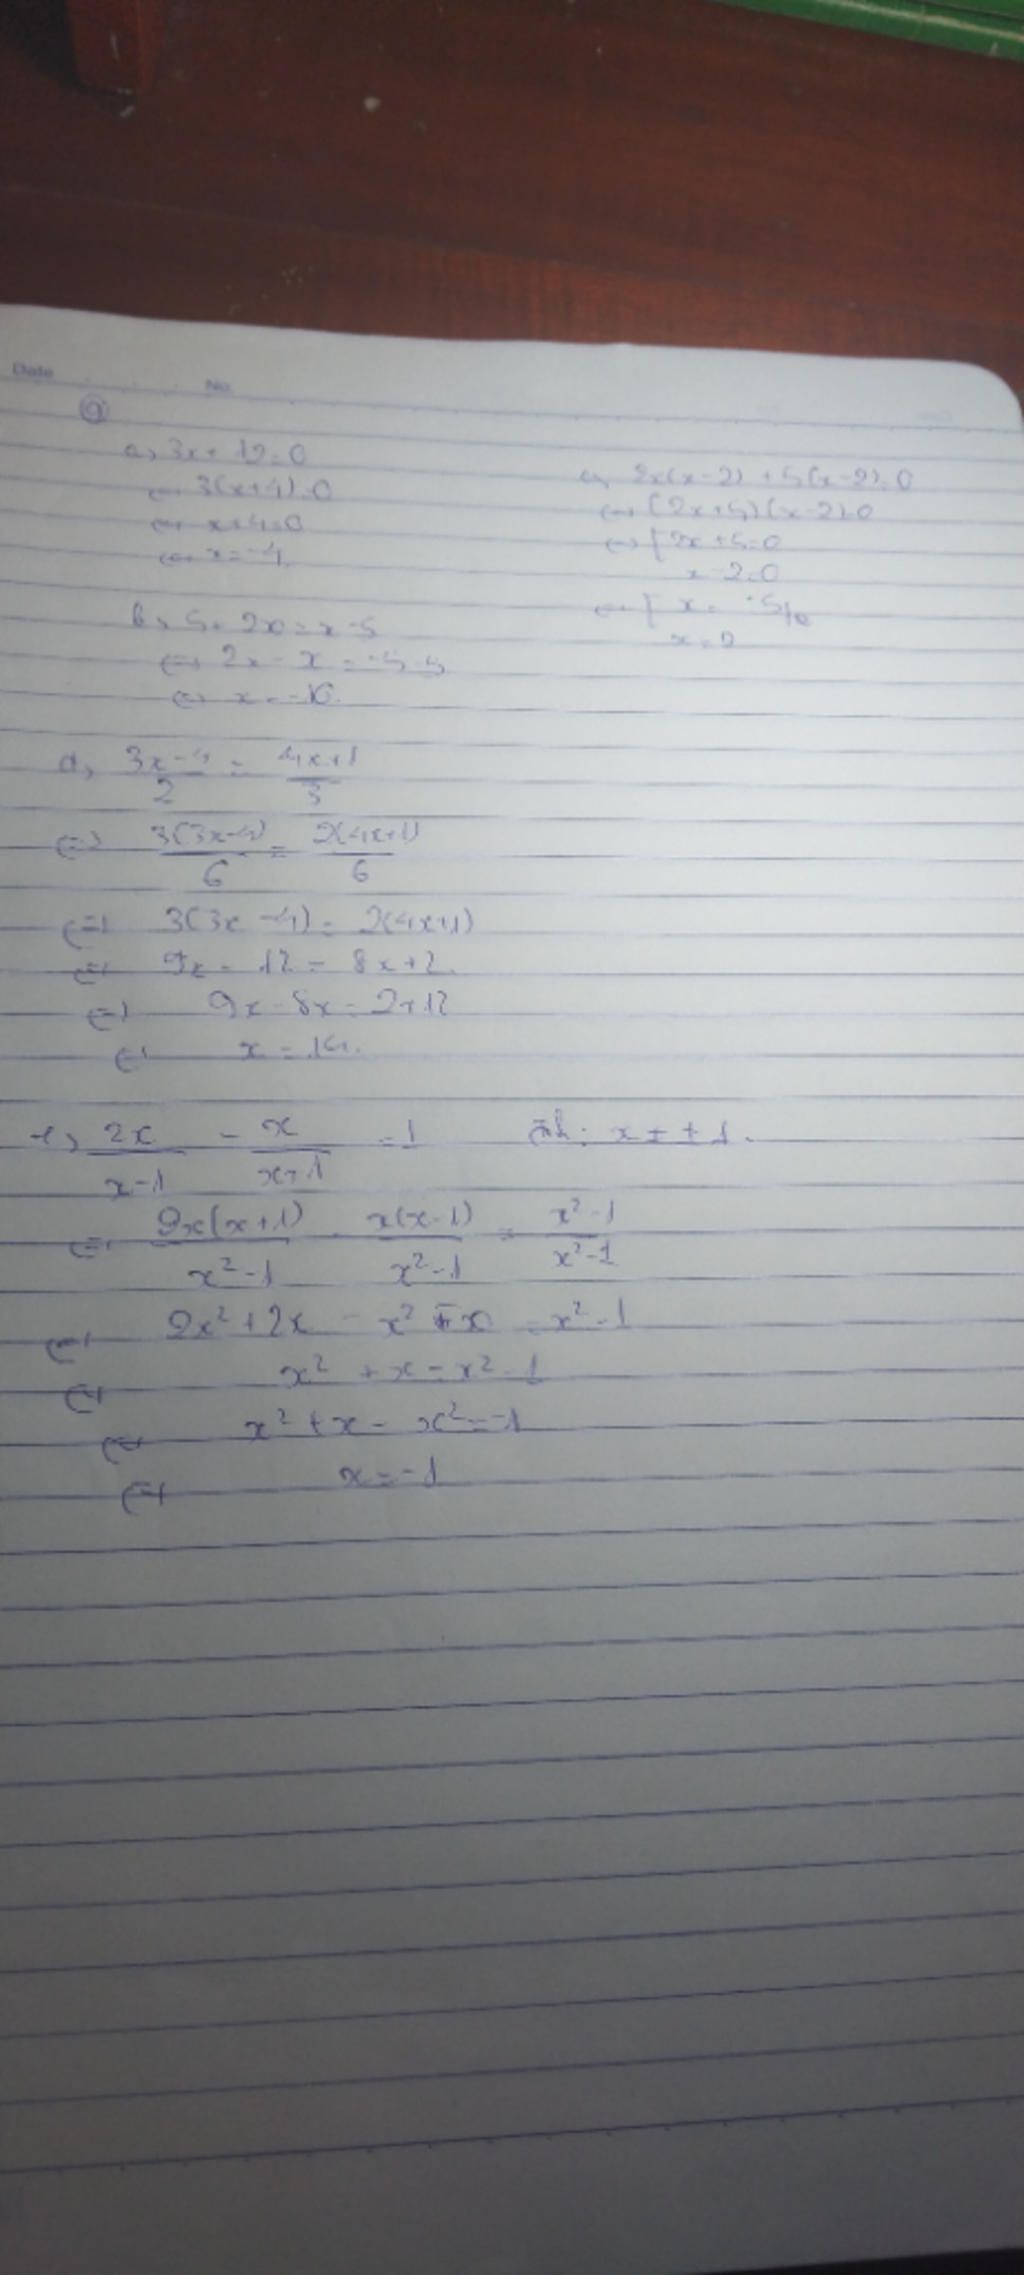 Date No.
9
a, 3x + 12 = 0
<=> 3(x+4) = 0
<=> x+4=0
<=> x = -4.
b, 5 + 2x = x - 5
<=> 2x - x = -5-5
<=> x = -10.
c, 2x(x-2) + 5(x-2)=0
<=> (2x+5)(x-2)=0
<=> [ 2x+5=0
x-2=0
<=> [ x = -5/2
x = 2
d, (3x-4)/2 = (4x+1)/3
<=> 3(3x-4)/6 = 2(4x+1)/6
<=> 3(3x-4) = 2(4x+1)
<=> 9x - 12 = 8x+2.
<=> 9x-8x = 2+12
<=> x = 14.
e, 2x/(x-1) - x/(x+1) = 1 đk: x ≠ ±1.
<=> 2x(x+1)/(x²-1) - x(x-1)/(x²-1) = (x²-1)/(x²-1)
<=> 2x² + 2x - x² + x = x² - 1
<=> x² + x = x² - 1
<=> x² + x - x² = -1
<=> x = -1